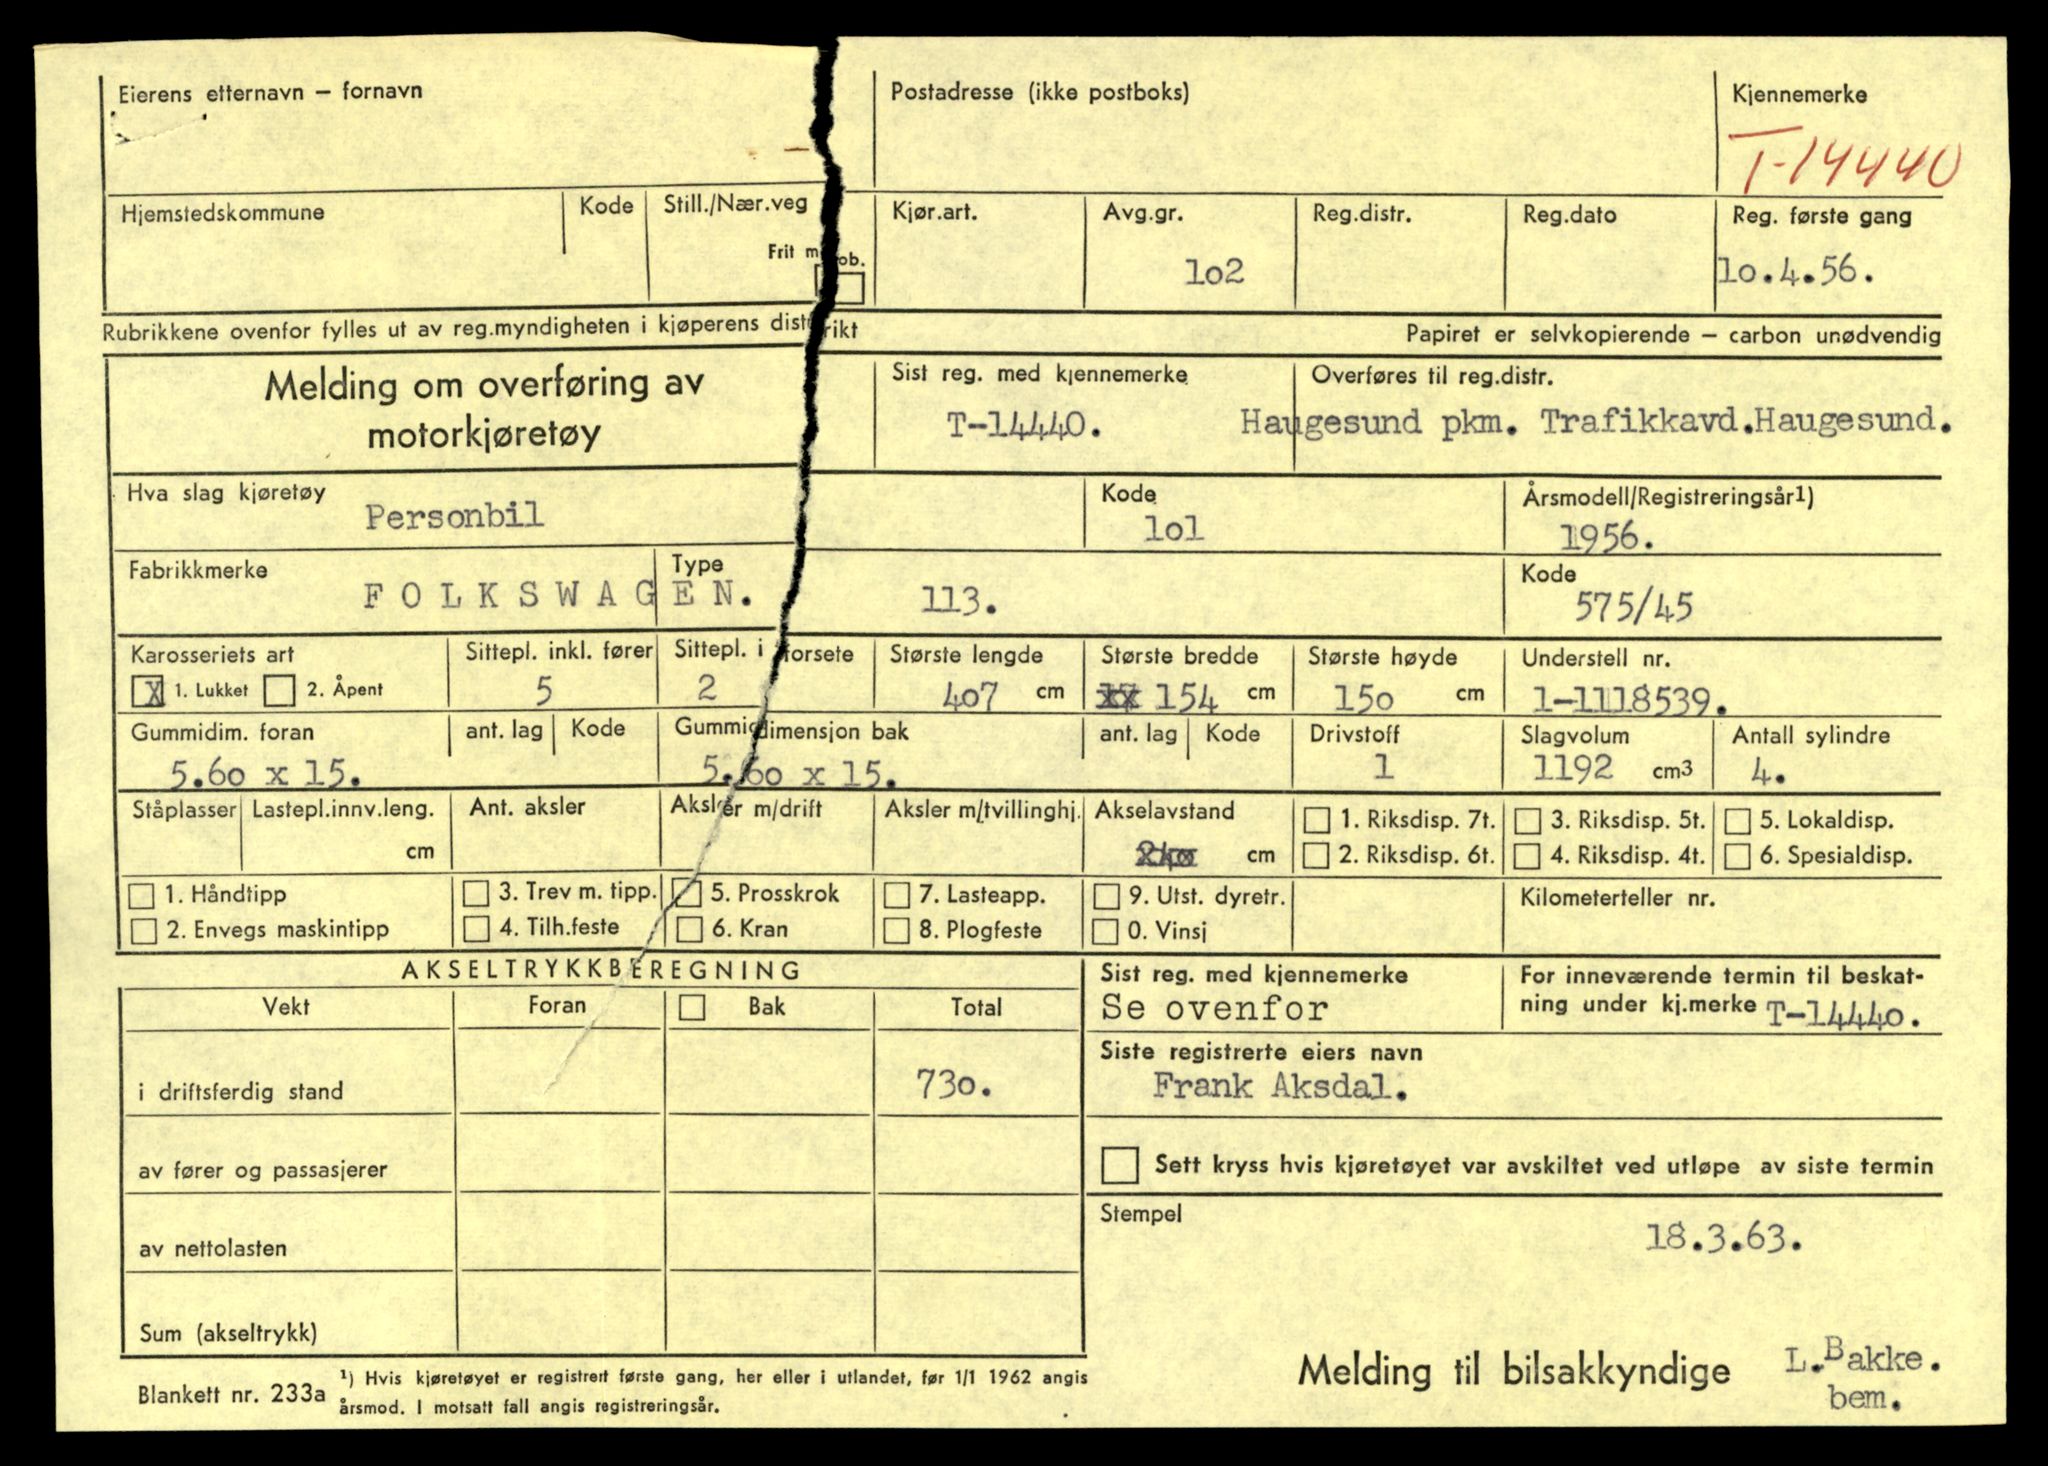 Eierens etternavn – fornavn Postadresse (ikke postboks) Kjennemerke
T-14440
Hjemstedskommune Kode Still./Nær.veg Kjør.art. Avg.gr. Reg.distr. Reg.dato Reg. første gang
Frit m ob.
1o2 1o.4.56.
Rubrikkene ovenfor fylles ut av reg.myndigheten i kjøperens distrikt Papiret er selvkopierende – carbon unødvendig
Melding om overføring av motorkjøretøy
Sist reg. med kjennemerke Overføres til reg.distr.
T-1444O. Haugesund pkm. Trafikkavd.Haugesund.
Hva slag kjøretøy Kode Årsmodell/Registreringsår1)
Personbil 1o1 1956.
Fabrikkmerke Type Kode
F O L K S W A G E N. 113. 575/45
Karosseriets art Sittepl. inkl. fører Sittepl. i forsete Største lengde Største bredde Største høyde Understell nr.
X 1. Lukket 2. Åpent 5 2 4o7 cm 154 cm 15o cm 1-1118539.
Gummidim. foran ant. lag Kode Gummidimensjon bak ant. lag Kode Drivstoff Slagvolum Antall sylindre
5.6o x 15. 5.6o x 15. 1 1192 cm3 4.
Ståplasser Lastepl.innv.leng. Ant. aksler Aksler m/drift Aksler m/tvillinghj. Akselavstand 1. Riksdisp. 7t. 3. Riksdisp. 5t. 5. Lokaldisp.
cm 24o cm 2. Riksdisp. 6t. 4. Riksdisp. 4t. 6. Spesialdisp.
1. Håndtipp 3. Trev m. tipp. 5. Prosskrok 7. Lasteapp. 9. Utst. dyretr. Kilometerteller nr.
2. Envegs maskintipp 4. Tilh.feste 6. Kran 8. Plogfeste 0. Vinsj
AKSELTRYKKBEREGNING
Vekt Foran Bak Total
i driftsferdig stand 73o.
av fører og passasjerer
av nettolasten
Sum (akseltrykk)
Sist reg. med kjennemerke
Se ovenfor
For inneværende termin til beskat-
ning under kj.merke T-1444o.
Siste registrerte eiers navn
Frank Aksdal.
Sett kryss hvis kjøretøyet var avskiltet ved utløpe av siste termin
Stempel
18.3.63.
Melding til bilsakkyndige L.Bakke.
bem.
Blankett nr. 233a
1) Hvis kjøretøyet er registrert første gang, her eller i utlandet, før 1/1 1962 angis
årsmod. I motsatt fall angis registreringsår.